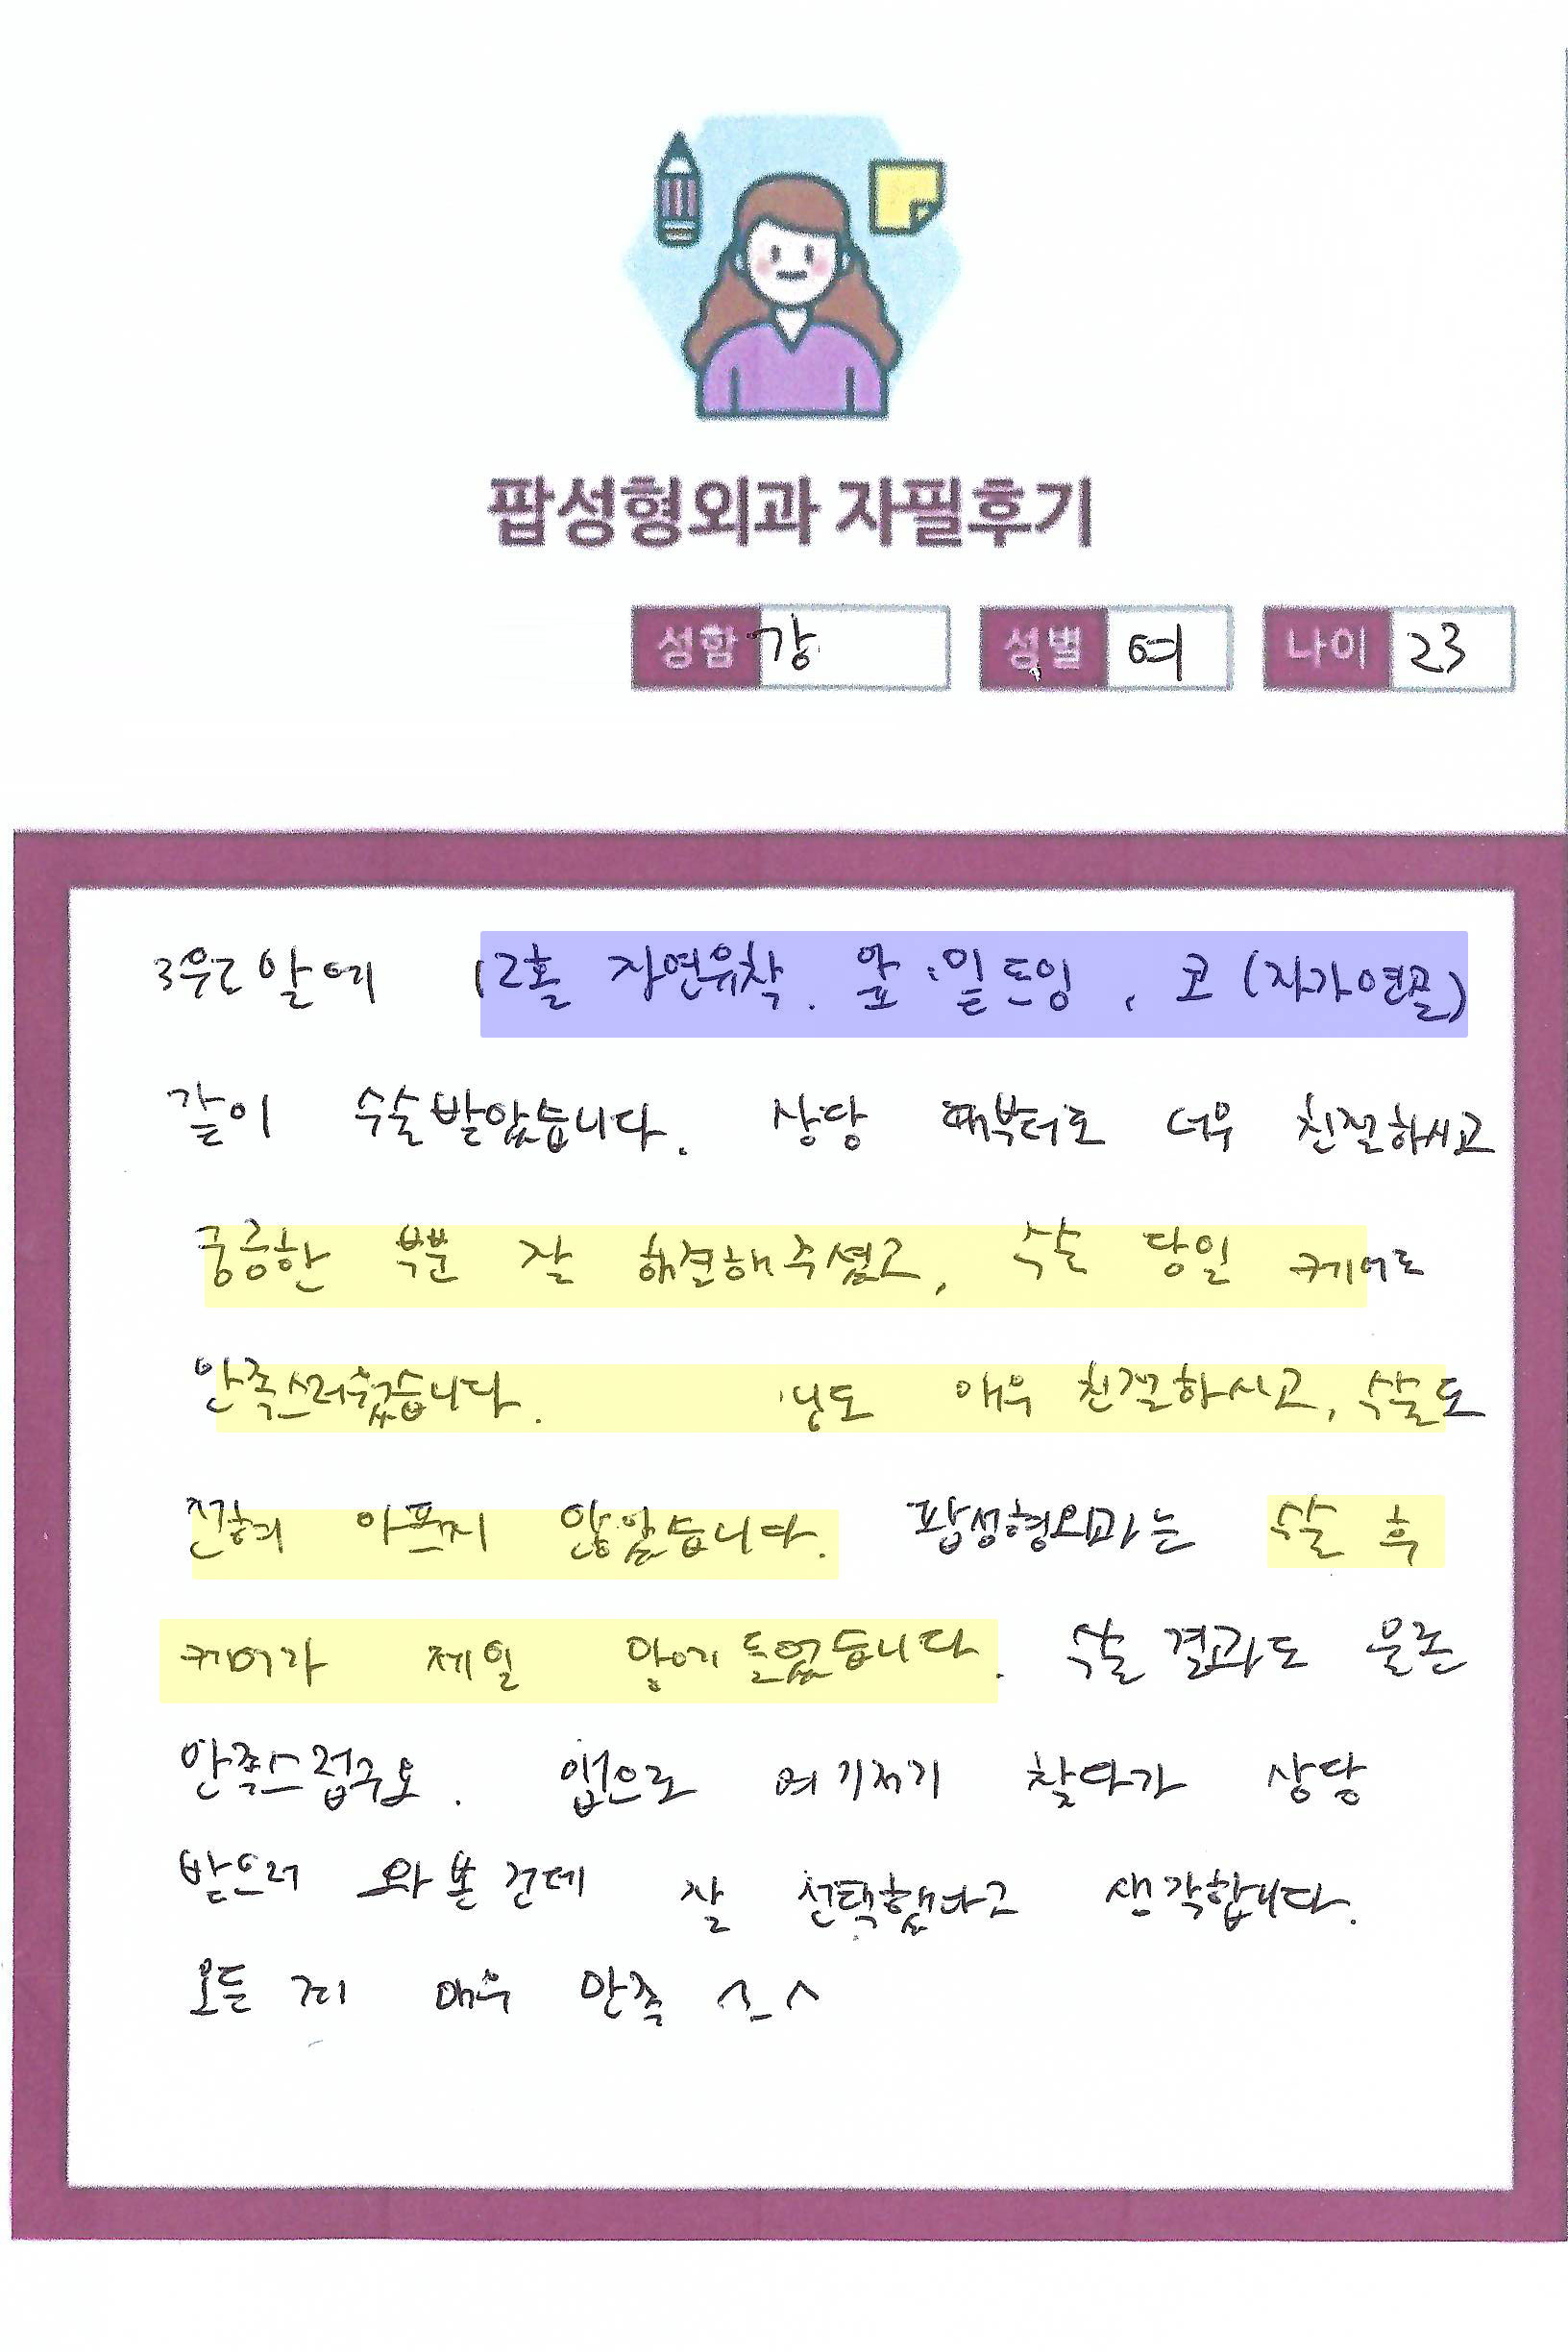 팝성형외과 자필후기
성함 강 성별 여 나이 23
3월 말에 12홀 자연유착. 앞·밑트임, 코 (자가연골)
같이 수술받았습니다. 상담 때부터도 너무 친절하시고
궁금한 부분 잘 해결해주셨고, 수술 당일 케어도
만족스러웠습니다. 님도 매우 친절하시고, 수술도
전혀 아프지 않았습니다. 팝성형외과는 수술 후
케어가 제일 맘에 들었습니다. 수술 결과도 물론
만족스럽구요. 앱으로 여기저기 찾다가 상담
받으러 와본건데 잘 선택했다고 생각합니다.
모든 게 매우 만족 ^_^